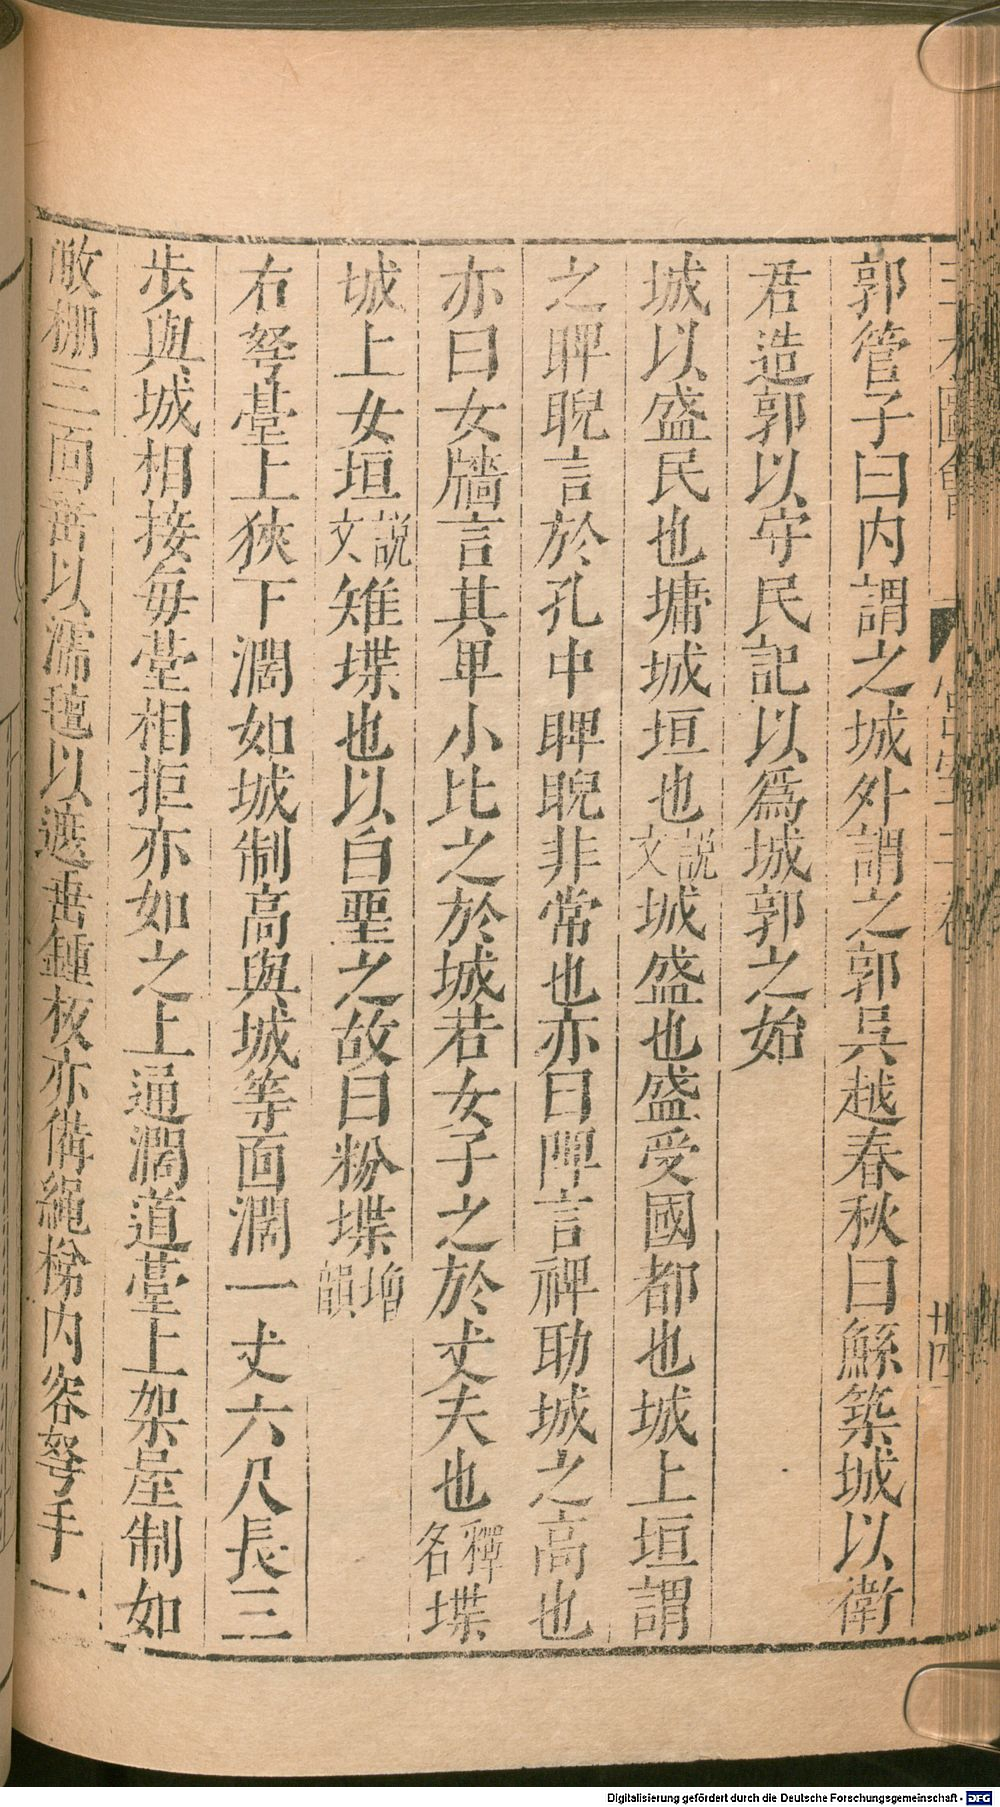 三才圖會 宮室二卷 廿四
郭管子曰内謂之城外謂之郭吳越春秋曰鯀築城以衛
君造郭以守民記以爲城郭之始
城以盛民也墉城垣也說文城盛也盛受國都也城上垣謂
之睥睨言於孔中睥睨非常也亦曰陴言裨助城之高也
亦曰女牆言其卑小比之於城若女子之於丈夫也釋名堞
城上女垣說文雉堞也以白堊之故曰粉堞增韻
右弩臺上狹下濶如城制高與城等面濶一丈六尺長三
步與城相接每臺相拒亦如之上通濶道臺上架屋制如
敵棚三面垂以濡氊以遮垂鍾板亦備繩梯内容弩手一
Digitalisierung gefördert durch die Deutsche Forschungsgemeinschaft - DFG